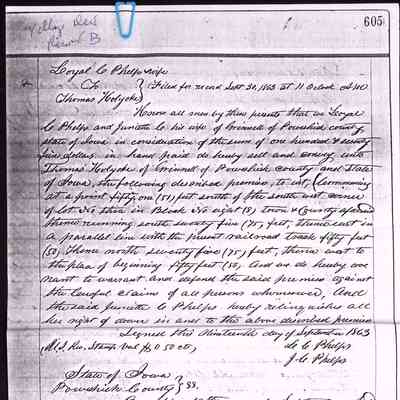 605
Village Deed
Record B
Loyal C Phelps & wife
To } Filed for record Sept 30, 1863 at 11 Oclock A M
Thomas Holyoke
Know all men by these presents that we Loyal
C Phelps and Juniette C his wife of Grinnell of Poweshiek county,
state of Iowa in consideration of the sum of one hundred & seventy
five dollars in hand paid do hereby sell and convey unto
Thomas Holyoke of Grinnell of Poweshiek County and State
of Iowa, the following described premises, to wit, Commencing
at a point fifty one (51) feet south of the south west corner
of lot No three in Block No eight (8) town & County aforesaid
thence running south seventy five (75) feet, thence east in
a parallel line with the present railroad track fifty feet
(50) thence north seventy five (75) feet, thence west to
the place of beginning fifty feet (50, And we do hereby cov
enant to warrant and defend the said premises against
the lawful claims of all persons whomsoever, And
the said Juniette C Phelps hereby relinquishes all
her right of dower in and to the above described premises
Signed this thirteenth day of September 1863
U. S. Rev. Stamp val 50 cts, L. C Phelps
J. C Phelps
State of Iowa
Poweshiek County } SS.